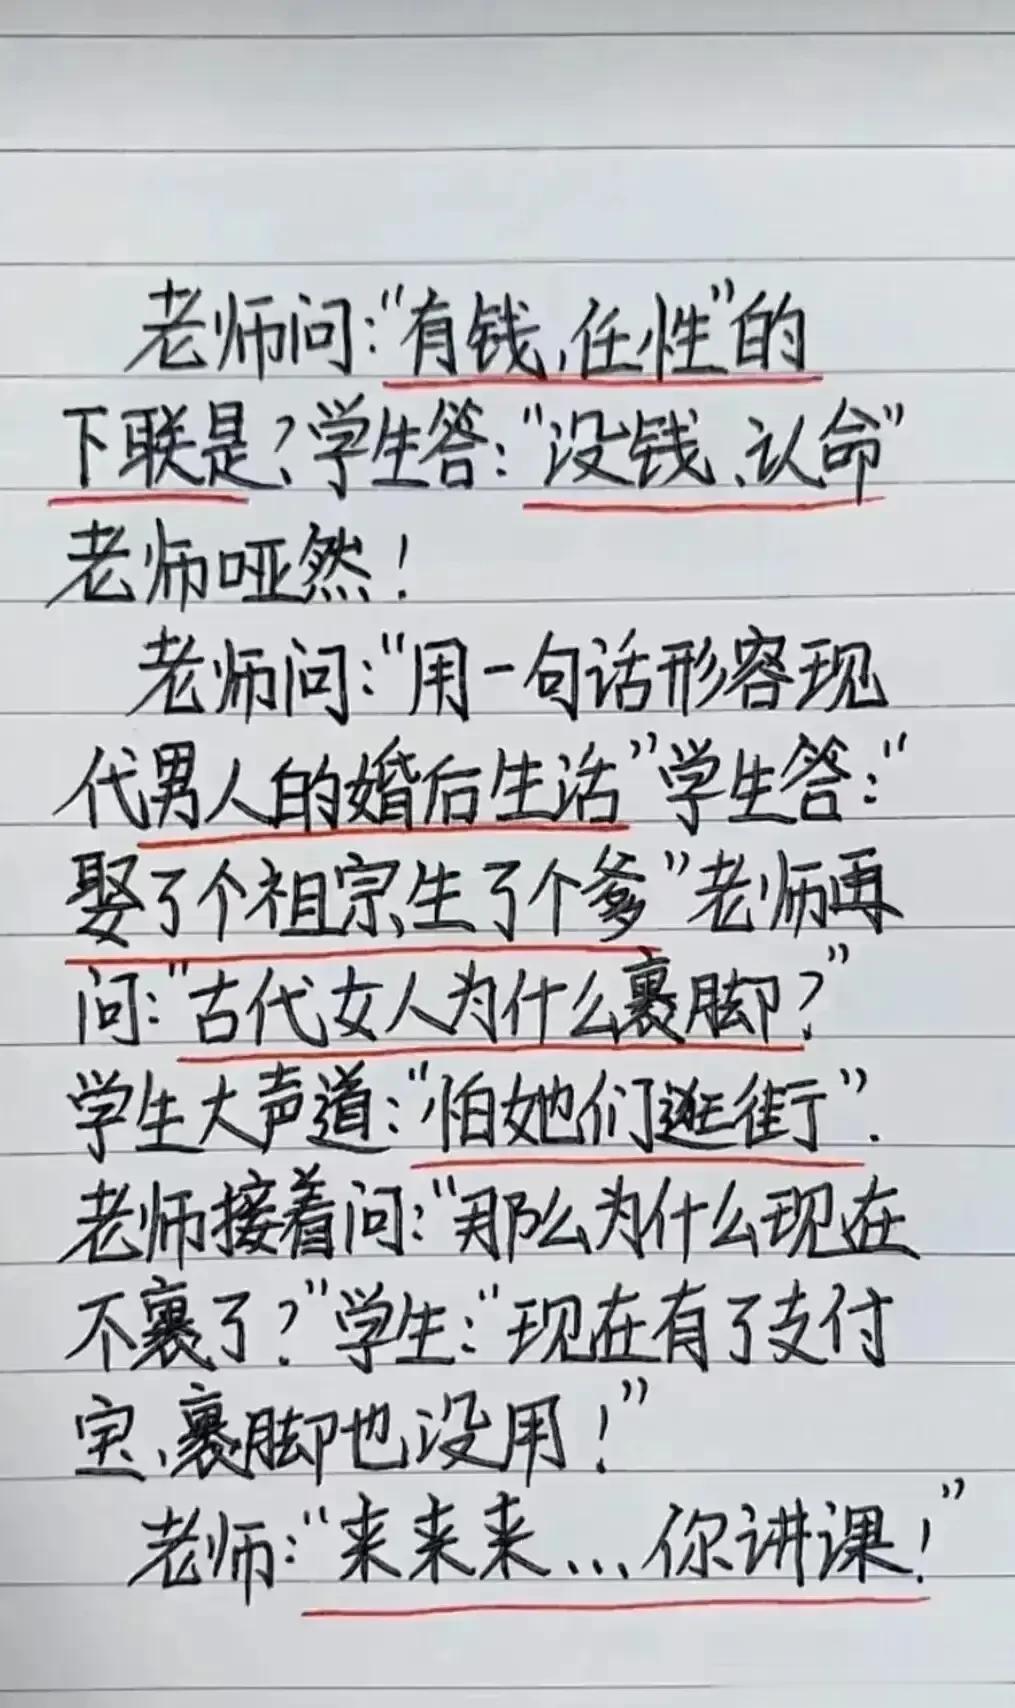 老师问：“有钱、任性”的
下联是？学生答：“没钱、认命”
老师哑然！
老师问：“用一句话形容现
代男人的婚后生活”学生答：“
娶了个祖宗、生了个爹”老师再
问：“古代女人为什么裹脚？”
学生大声道：“怕她们逛街”.
老师接着问：“那么为什么现在
不裹了？”学生：“现在有了支付
宝、裹脚也没用！”
老师：“来来来...你讲课！”